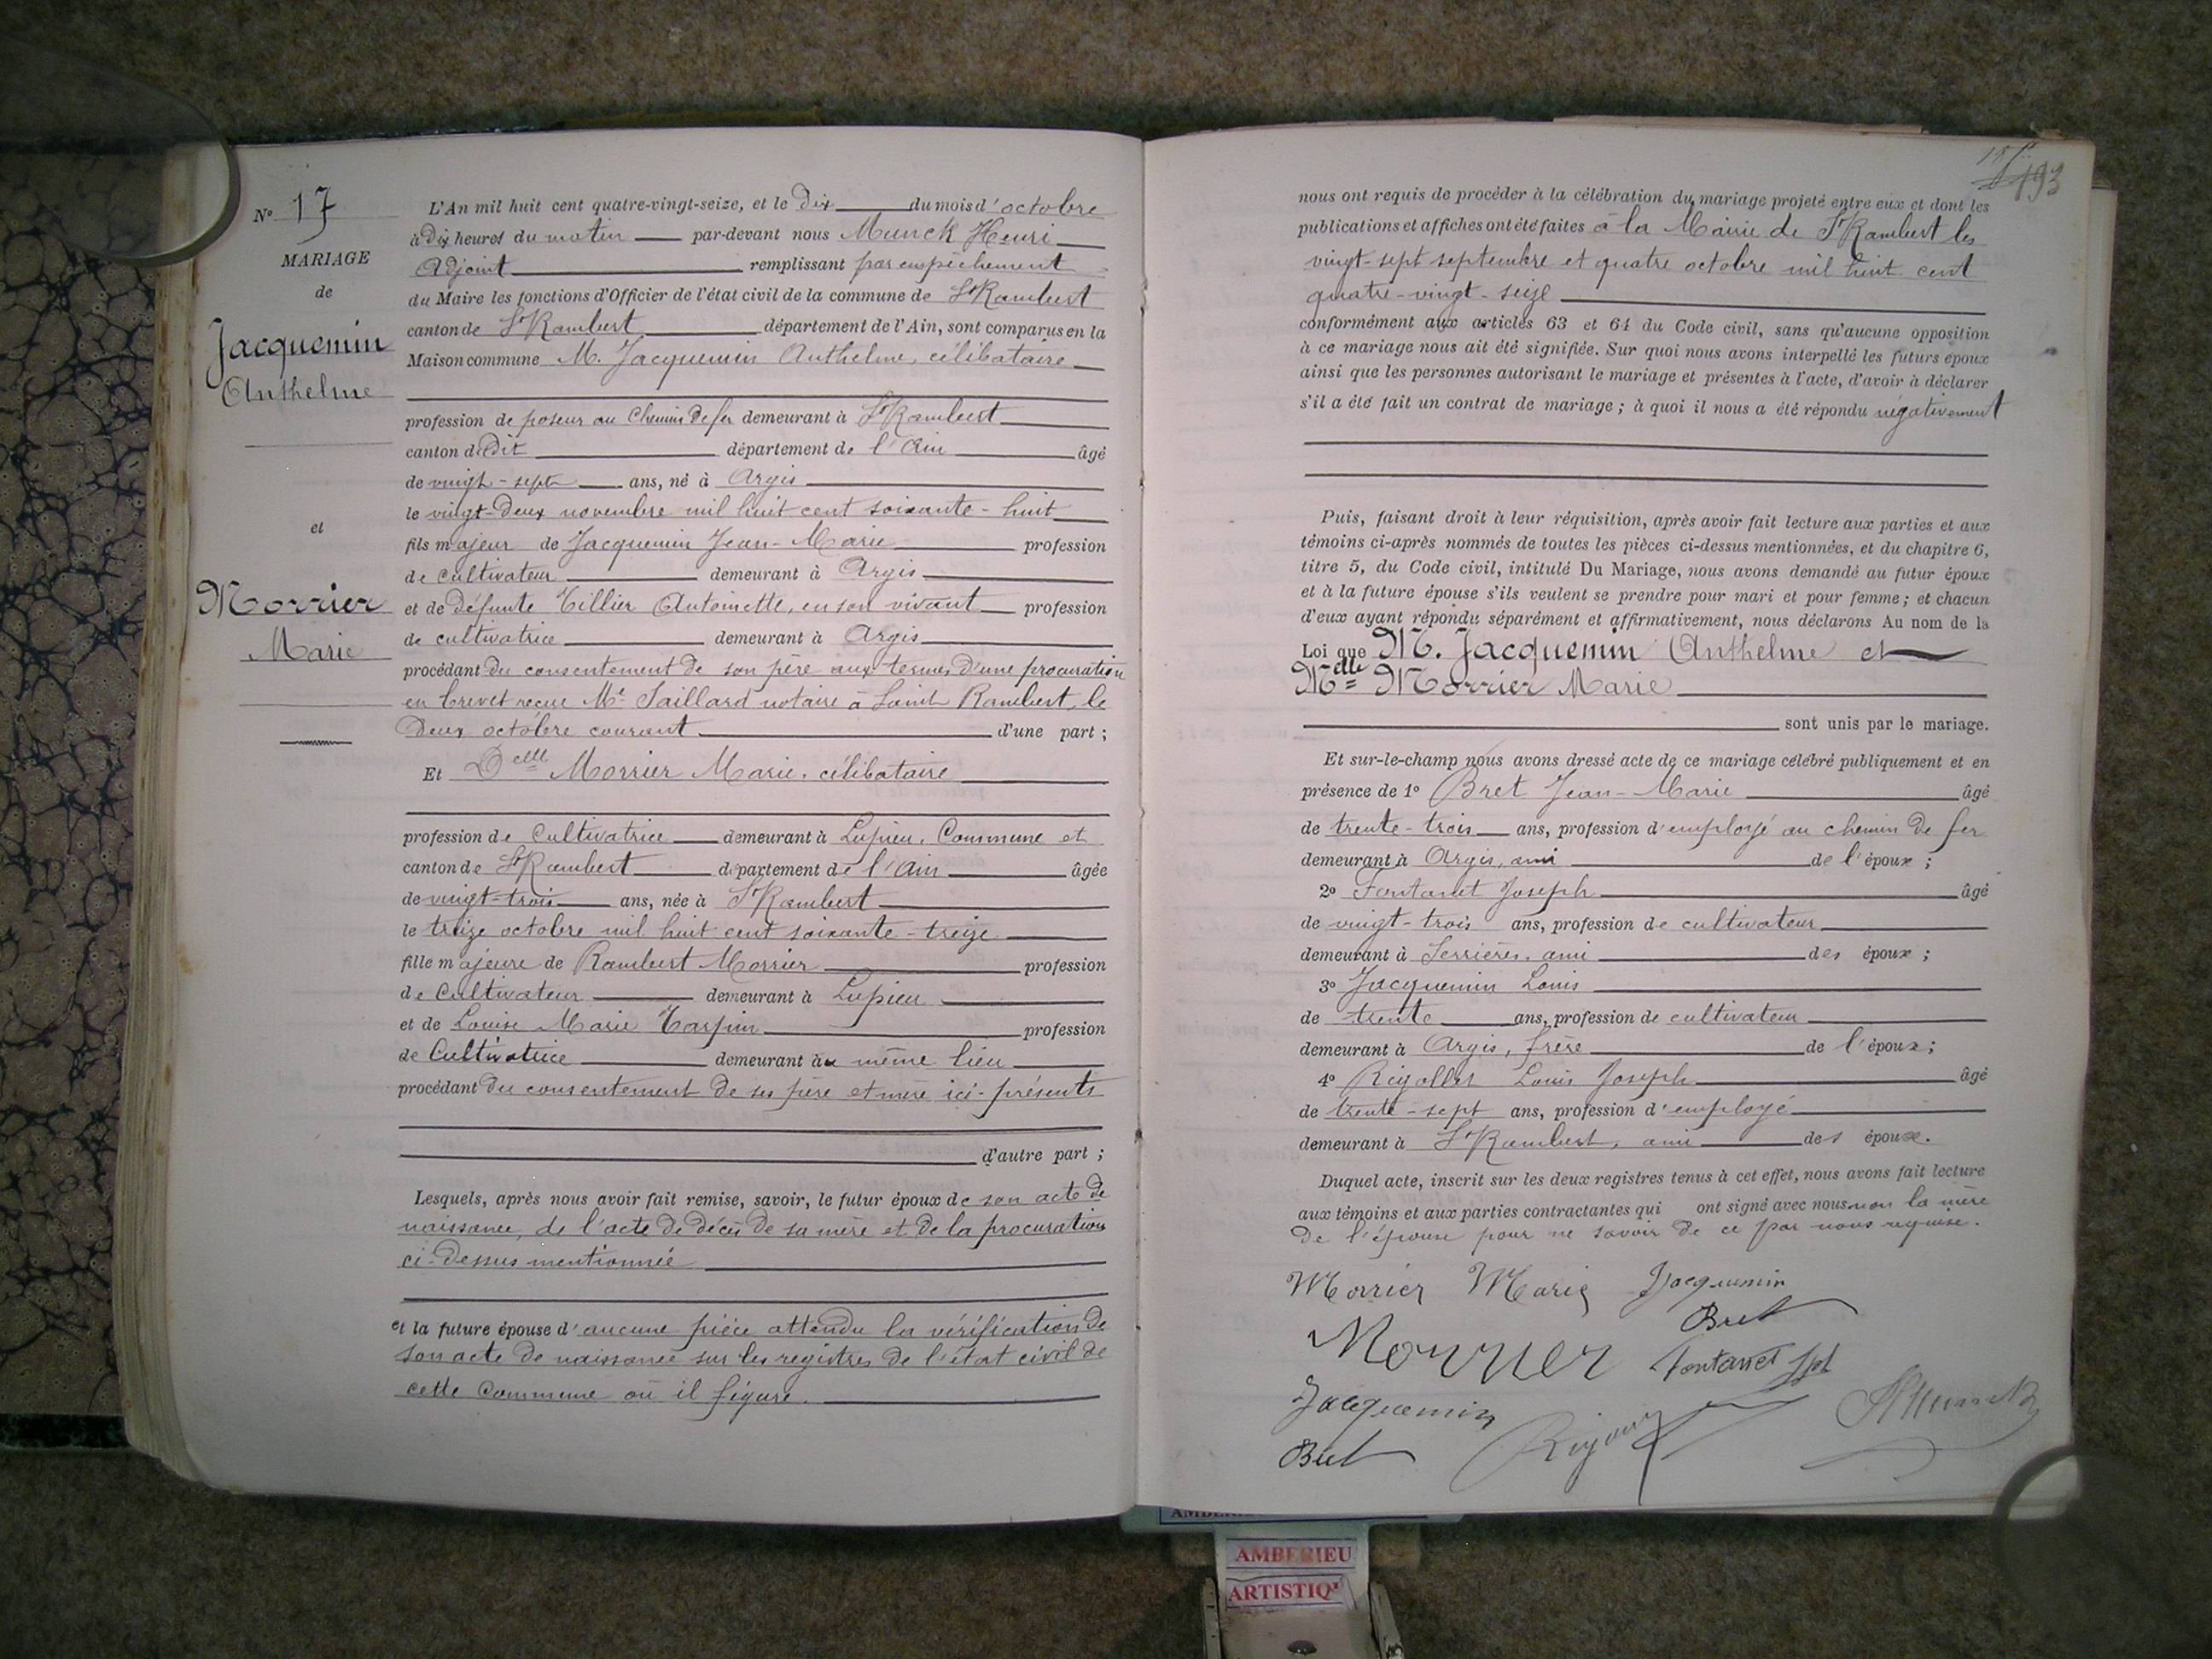 N° 17
MARIAGE
de
Jacquemin
Anthelme
et
Morrier
Marie
L'An mil huit cent quatre-vingt-seize, et le Dix du mois d'octobre
à Dix heures du matin par-devant nous Munck Henri
Adjoint remplissant par empêchement
du Maire les fonctions d'Officier de l'état civil de la commune de St Rambert
canton de St Rambert département de l'Ain, sont comparus en la
Maison commune M. Jacquemin Anthelme, célibataire
profession de poseur au Chemin de fer demeurant à St Rambert
canton dudit département de l'Ain âgé
de vingt-sept ans, né à Argis
le vingt-deux novembre mil huit cent soixante-huit
fils majeur de Jacquemin Jean-Marie profession
de cultivateur demeurant à Argis
et de défunte Tillier Antoinette, en son vivant profession
de cultivatrice demeurant à Argis
procédant du consentement de son père aux termes d'une procuration
en brevet reçue Me Saillard notaire à Saint Rambert, le
Deux octobre courant d'une part ;
Et Delle Morrier Marie, célibataire
profession de Cultivatrice demeurant à Lupieu, Commune et
canton de St Rambert département de l'Ain âgée
de vingt-trois ans, née à St Rambert
le treize octobre mil huit cent soixante-treize
fille majeure de Rambert Morrier profession
de Cultivateur demeurant à Lupieu
et de Louise Marie Tarpin profession
de Cultivatrice demeurant au même lieu
procédant du consentement de ses père et mère ici-présents
d'autre part ;
Lesquels, après nous avoir fait remise, savoir, le futur époux de son acte de
naissance, de l'acte de décès de sa mère et de la procuration
ci-dessus mentionnée
et la future épouse d'aucune pièce attendu la vérification de
son acte de naissance sur les registres de l'état civil de
cette Commune où il figure.
193
nous ont requis de procéder à la célébration du mariage projeté entre eux et dont les
publications et affiches ont été faites à la Mairie de St Rambert les
vingt-sept septembre et quatre octobre mil huit cent
quatre-vingt-seize
conformément aux articles 63 et 64 du Code civil, sans qu'aucune opposition
à ce mariage nous ait été signifiée. Sur quoi nous avons interpellé les futurs époux
ainsi que les personnes autorisant le mariage et présentes à l'acte, d'avoir à déclarer
s'il a été fait un contrat de mariage ; à quoi il nous a été répondu négativement
Puis, faisant droit à leur réquisition, après avoir fait lecture aux parties et aux
témoins ci-après nommés de toutes les pièces ci-dessus mentionnées, et du chapitre 6,
titre 5, du Code civil, intitulé Du Mariage, nous avons demandé au futur époux
et à la future épouse s'ils veulent se prendre pour mari et pour femme ; et chacun
d'eux ayant répondu séparément et affirmativement, nous déclarons Au nom de la
Loi que M. Jacquemin Anthelme et
Melle Morrier Marie
sont unis par le mariage.
Et sur-le-champ nous avons dressé acte de ce mariage célébré publiquement et en
présence de 1° Bret Jean-Marie âgé
de trente-trois ans, profession d'employé au chemin de fer
demeurant à Argis, ami de l'époux ;
2° Fontanet Joseph âgé
de vingt-trois ans, profession de cultivateur
demeurant à Serrières, ami des époux ;
3° Jacquemin Louis
de trente ans, profession de cultivateur
demeurant à Argis, frère de l'époux ;
4° Rigollet Louis Joseph âgé
de trente-sept ans, profession d'employé
demeurant à St Rambert, ami des époux.
Duquel acte, inscrit sur les deux registres tenus à cet effet, nous avons fait lecture
aux témoins et aux parties contractantes qui ont signé avec nous non la mère
de l'épouse pour ne savoir de ce par nous requise.
Morrier Marie Jacquemin
Bret
Morrier Fontanet Jph
Jacquemin
Bret
AMBERIEU
ARTISTIQ